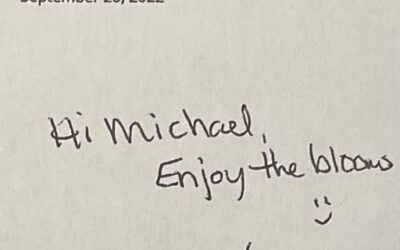 September 20, 2022
Hi Michael,
Enjoy the blooms